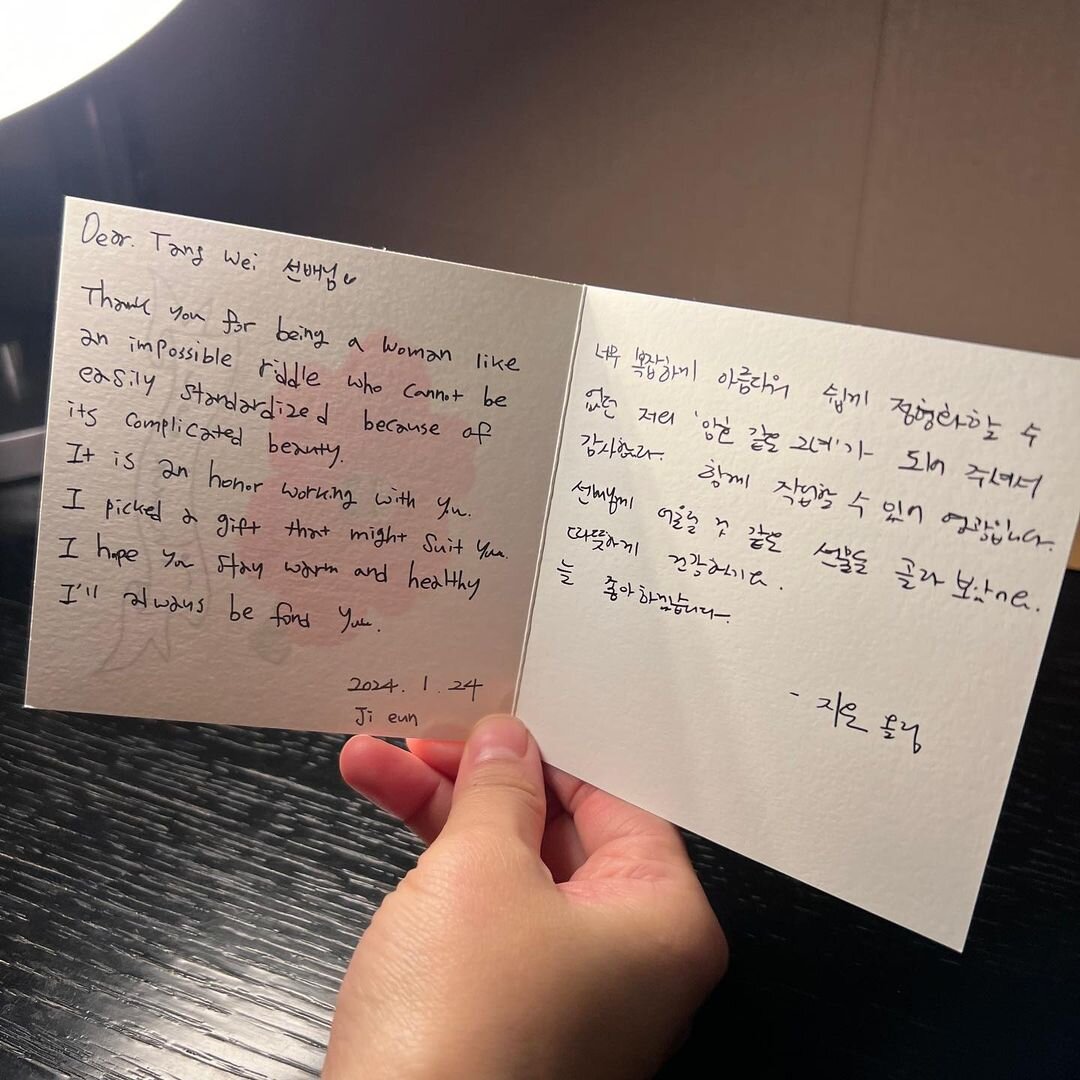 Dear. Tang Wei 선배님♥
Thank you for being a woman like
an impossible riddle who cannot be
easily standardized because of
its complicated beauty.
It is an honor working with you.
I picked a gift that might suit you.
I hope you stay warm and healthy
I'll always be fond you.
2024. 1. 24
Ji eun
너무 복잡하게 아름다워 쉽게 정형화할 수
없던 저의 '암호 같은 그녀'가 되어 주셔서
감사합니다. 함께 작업할 수 있어 영광입니다.
선배님께 어울릴 것 같은 선물을 골라 보았어요.
따뜻하게 건강하세요.
늘 좋아하겠습니다.
- 지은 올림